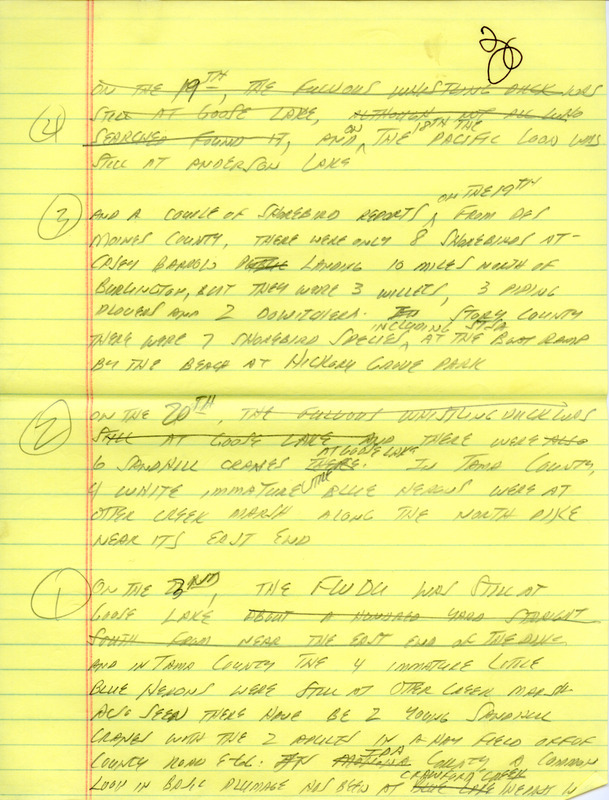 20
ON THE 19TH, THE FULVOUS WHISTLING DUCK WAS
STILL AT GOOSE LAKE, ALTHOUGH NOT ALL WHO
SEARCHED FOUND IT, AND ON 18TH THE THE PACIFIC LOON WAS
STILL AT ANDERSON LAKE
4
3
AND A COUPLE OF SHOREBIRD REPORTS ON THE 19TH, FROM DES
MOINES COUNTY, THERE WERE ONLY 8 SHOREBIRDS AT
CASEY BARROW LANDING 10 MILES NORTH OF
BURLINGTON, BUT THEY WERE 3 WILLETS, 3 PIPING
PLOVERS AND 2 DOWITCHERS. STORY COUNTY
THERE WERE 7 SHOREBIRD SPECIES, INCLUDING STSA AT THE BOAT RAMP
BY THE BEACH AT HICKORY GROVE PARK
2
ON THE 20TH, THE FULVOUS WHISTLING DUCK WAS
STILL AT GOOSE LAKE AND THERE WERE ALSO
6 SANDHILL CRANES THERE. AT GOOSE LAKE IN TAMA COUNTY,
4 WHITE IMMATURE LITTLE BLUE HERONS WERE AT
OTTER CREEK MARSH ALONG THE NORTH DIKE
NEAR ITS EAST END
1
ON THE 22ND, THE FUDU WAS STILL AT
GOOSE LAKE ABOUT A HUNDRED YARD STRAIGHT
SOUTH FROM NEAR THE EAST END OF THE DIKE
AND IN TAMA COUNTY THE 4 IMMATURE LITTLE
BLUE HERONS WERE STILL AT OTTER CREEK MARSH
ALSO SEEN THERE HAVE BE 2 YOUNG SANDHILL
CRANES WITH THE 2 ADULTS IN A HAY FIELD OFF OF
COUNTY ROAD E-66. IN IDA COUNTY A COMMON
LOON IN BASIC PLUMAGE HAS BEEN AT CRAWFORD CREEK BLUE LAKE